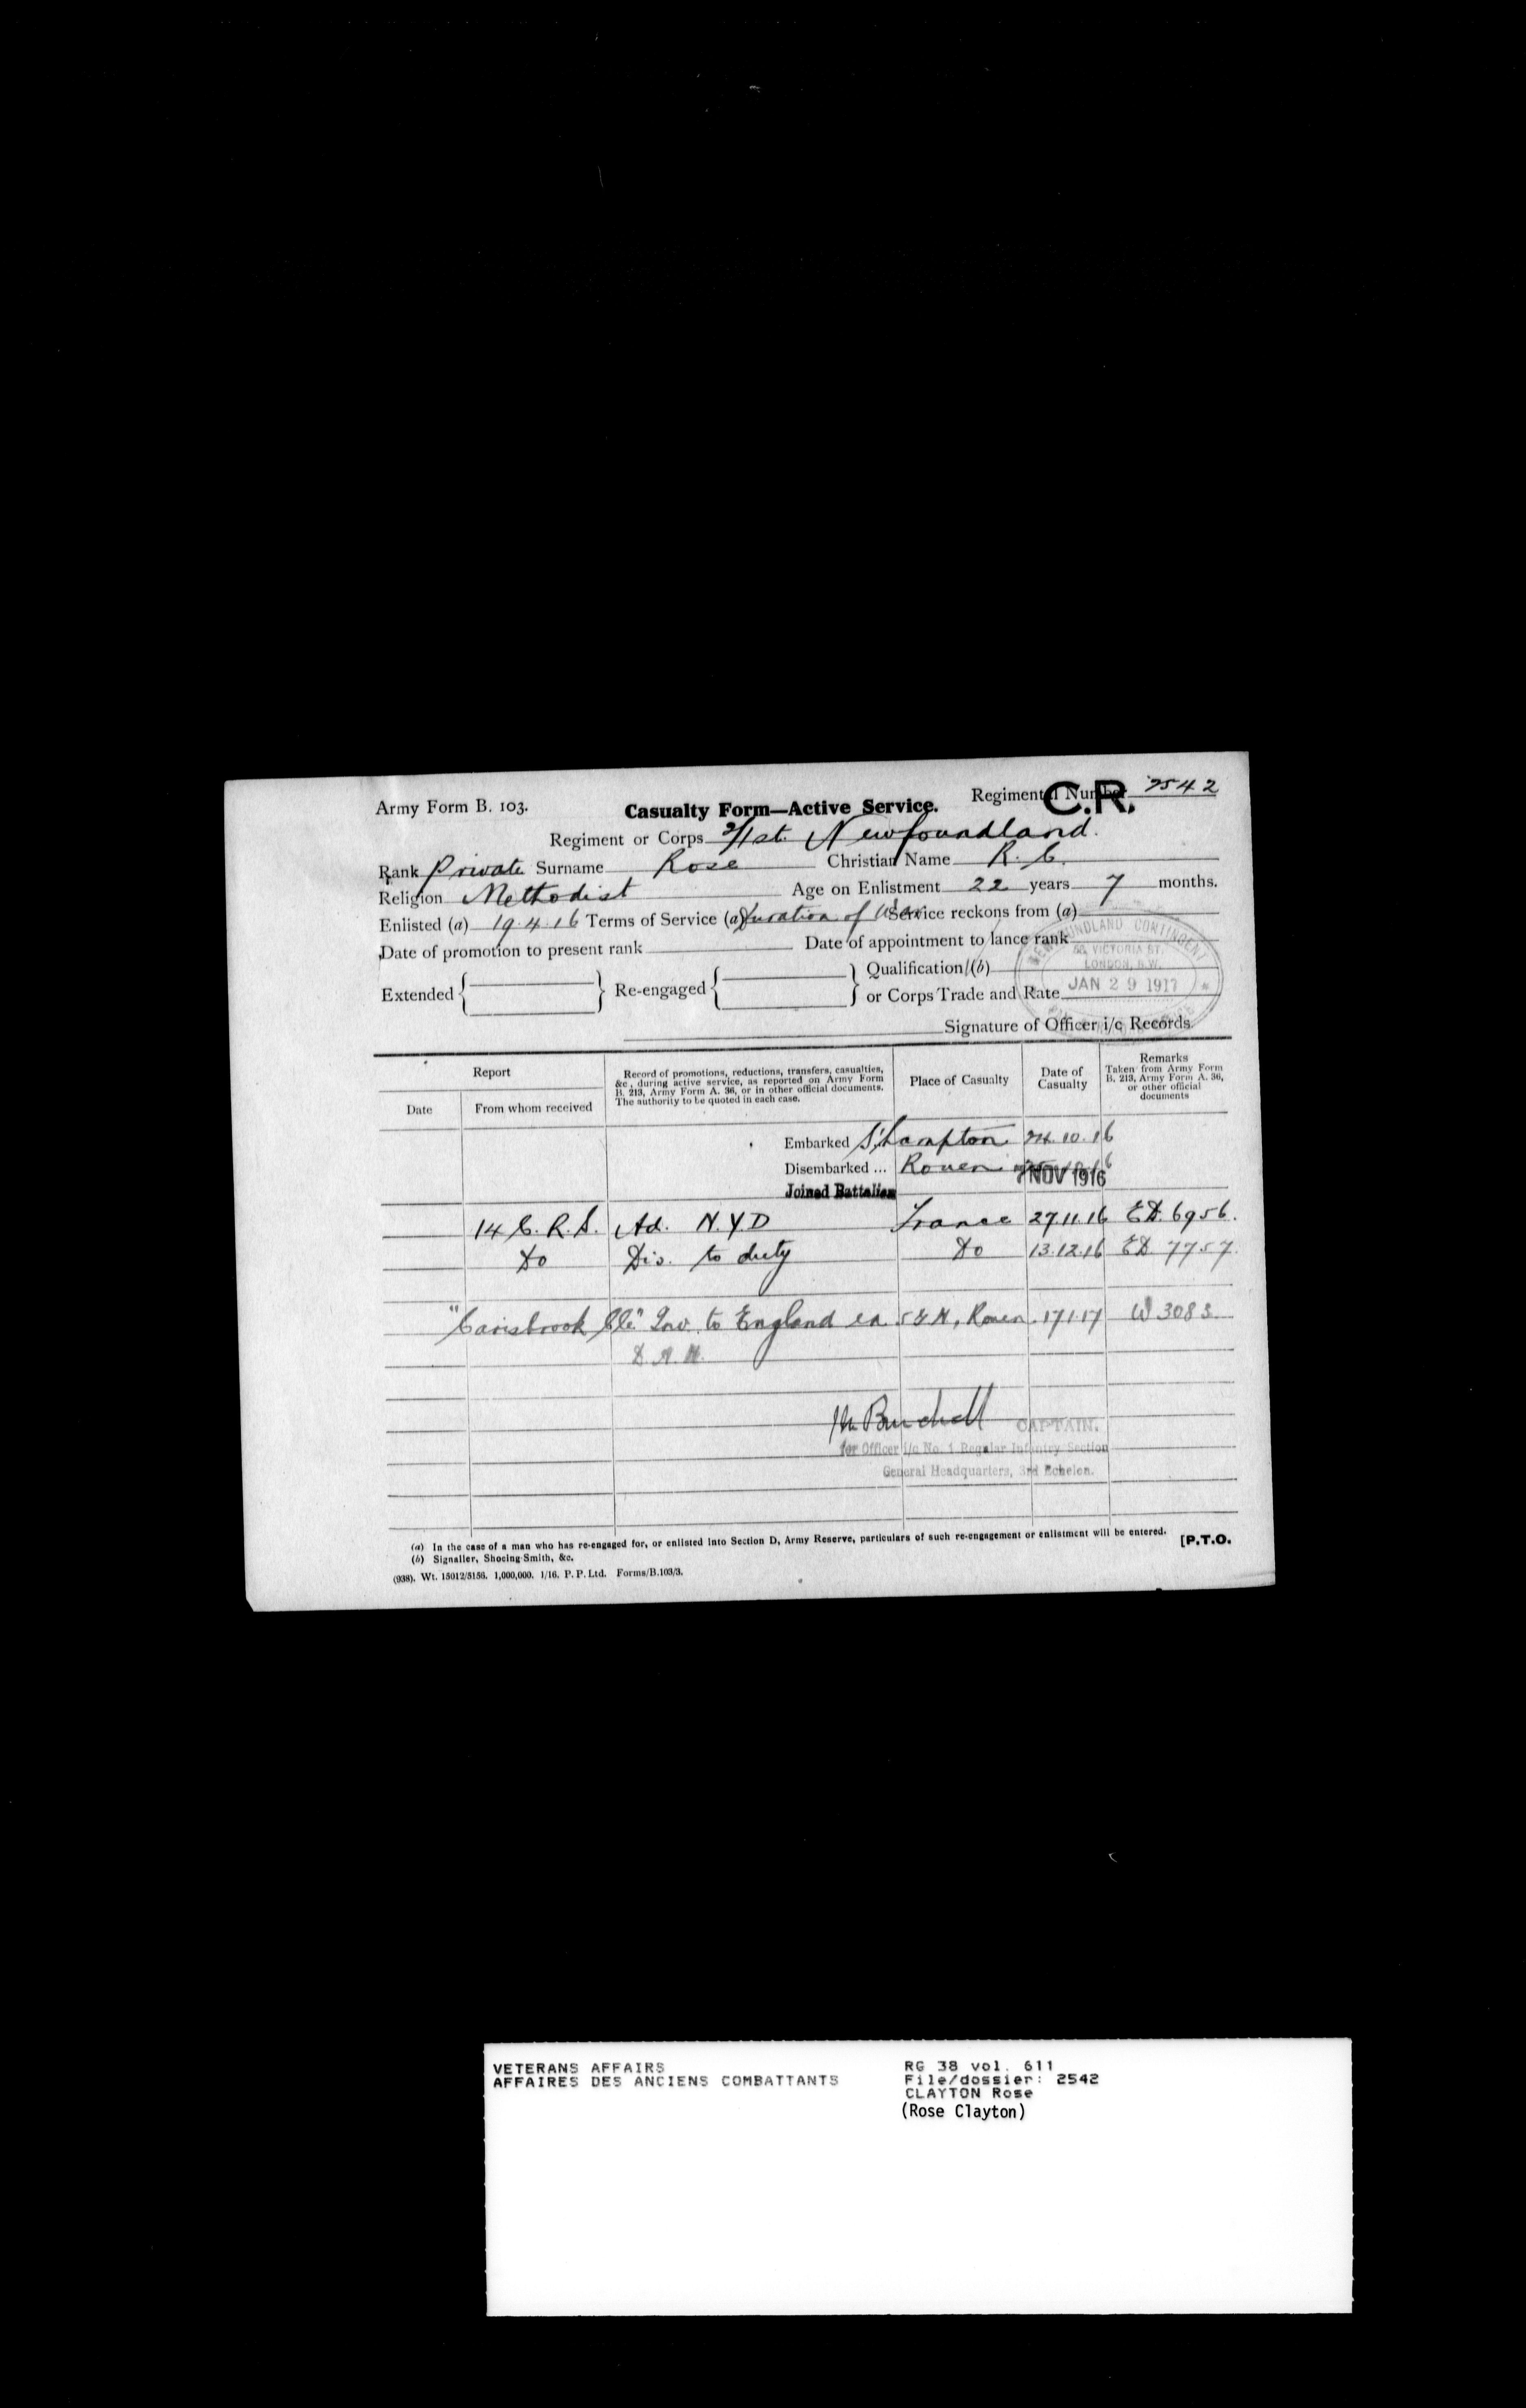 Army Form B. 103.
Casualty Form—Active Service.
Regimental Number 2542
C.R.
Regiment or Corps 2/1st. Newfoundland.
Rank Private Surname Rose Christian Name R. C.
Religion Methodist Age on Enlistment 22 years 7 months.
Enlisted (a) 19.4.16 Terms of Service (a) Duration of War Service reckons from (a)
Date of promotion to present rank Date of appointment to lance rank
Extended Re-engaged Qualification (b)
or Corps Trade and Rate
NEWFOUNDLAND CONTINGENT
58, VICTORIA ST.
LONDON, S.W.
JAN 29 1917
Signature of Officer i/c Records
Report
Date
From whom received
Record of promotions, reductions, transfers, casualties,
&c., during active service, as reported on Army Form
B. 213, Army Form A. 36, or in other official documents.
The authority to be quoted in each case.
Place of Casualty
Date of
Casualty
Remarks
Taken from Army Form
B. 213, Army Form A. 36,
or other official
documents
Embarked S'hampton 24.10.16
Disembarked ... Rouen
Joined Battalion NOV 1916
14 C. R. S. Ad. N.Y.D France 27.11.16 ED. 6956.
Do Dis. to duty Do 13.12.16 ED. 7757.
"Carisbrook Cle" Inv. to England ex 5 G.H, Rouen. 17.1.17 W 3083
D.A.H.
CAPTAIN.
for Officer i/c No. 1 Regular Infantry Section
General Headquarters, 3rd Echelon.
(a) In the case of a man who has re-engaged for, or enlisted into Section D, Army Reserve, particulars of such re-engagement or enlistment will be entered.
(b) Signaller, Shoeing-Smith, &c.
[P.T.O.
(938). Wt. 15012/5156. 1,000,000. 1/16. P. P. Ltd. Forms/B.103/3.
VETERANS AFFAIRS
AFFAIRES DES ANCIENS COMBATTANTS
RG 38 vol. 611
File/dossier: 2542
CLAYTON Rose
(Rose Clayton)